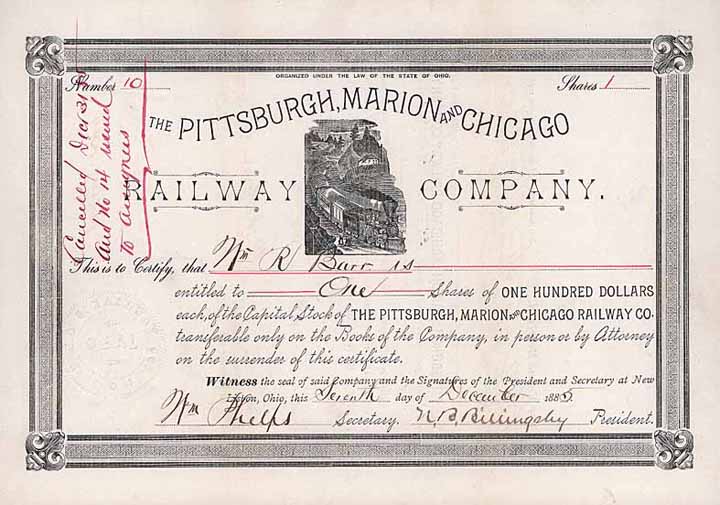 ORGANIZED UNDER THE LAW OF THE STATE OF OHIO.
Number 10
Shares 1
THE PITTSBURGH, MARION AND CHICAGO
RAILWAY COMPANY.
This is to Certify, that Wm R Burr is
entitled to One Shares of ONE HUNDRED DOLLARS
each, of the Capital Stock of THE PITTSBURGH, MARION AND CHICAGO RAILWAY CO.
transferable only on the Books of the Company, in person or by Attorney
on the surrender of this certificate.
Witness the seal of said Company and the Signatures of the President and Secretary at New
Lisbon, Ohio, this Seventh day of December 1885.
Wm Phelps Secretary. N. B. Billingsley President.
Cancelled Dec 31
and No 14 issued
to assignees